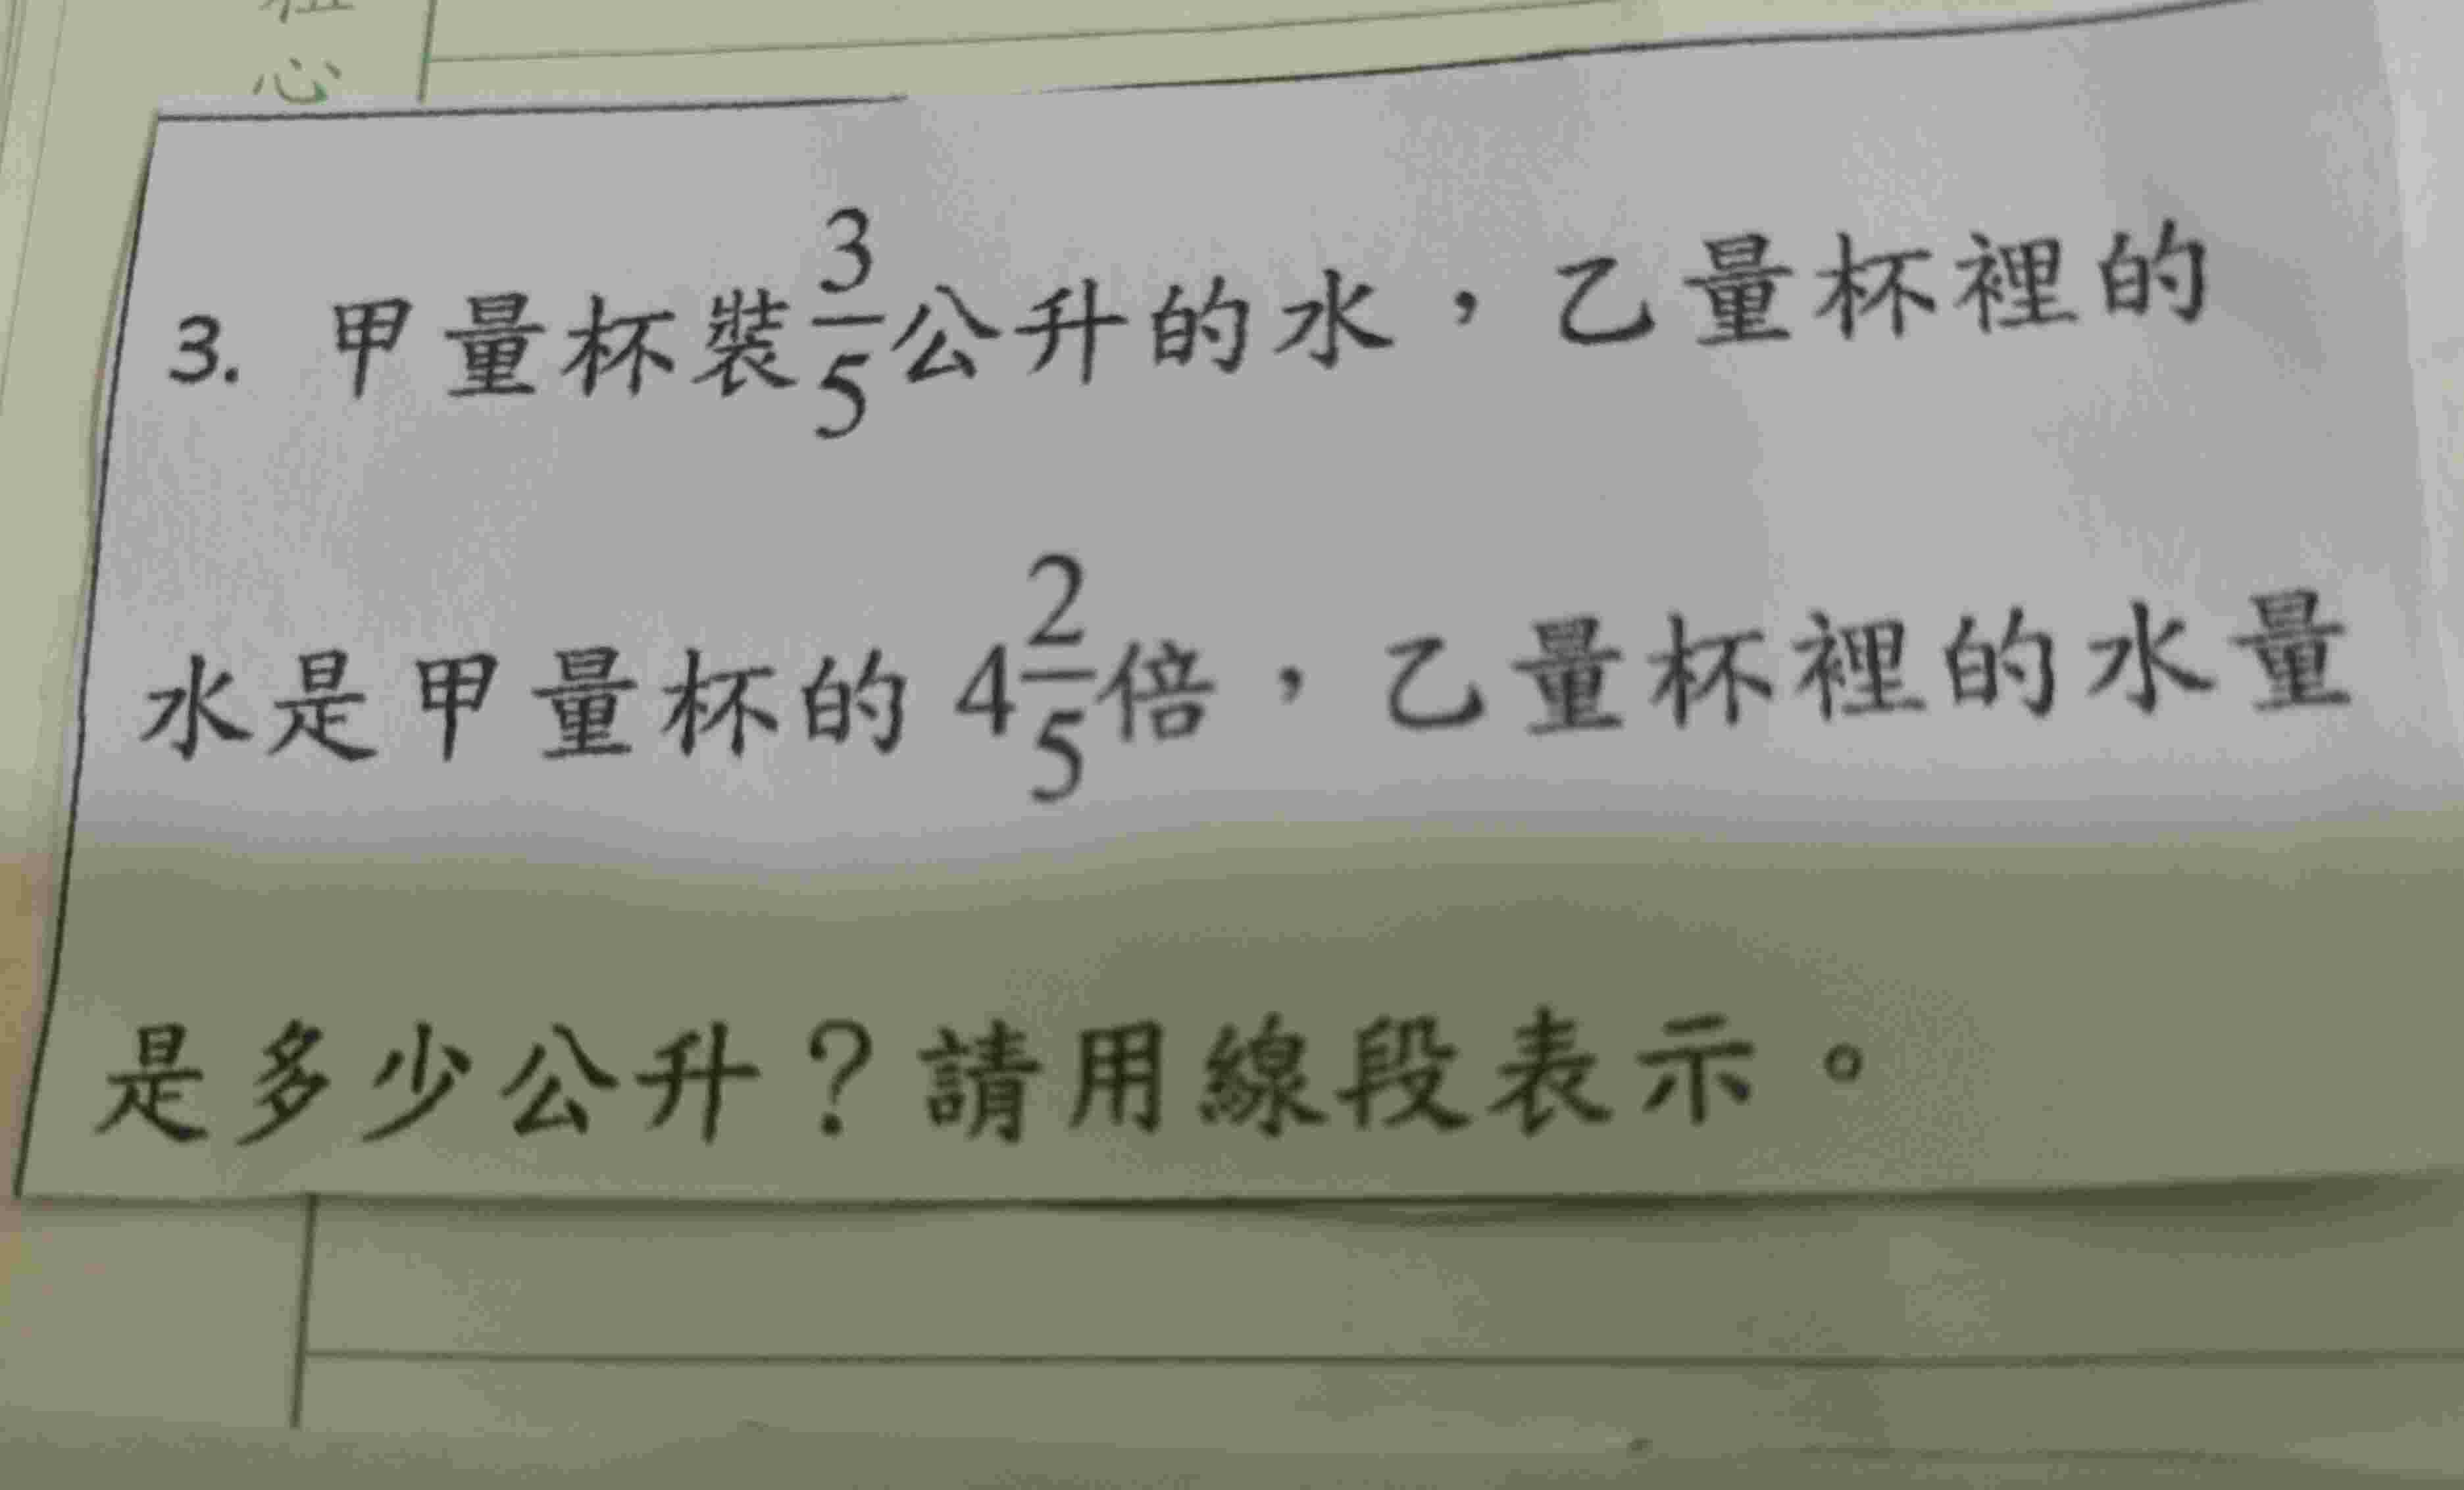 心
3. 甲量杯裝3/5公升的水，乙量杯裡的
水是甲量杯的 4 2/5倍，乙量杯裡的水量
是多少公升？請用線段表示。